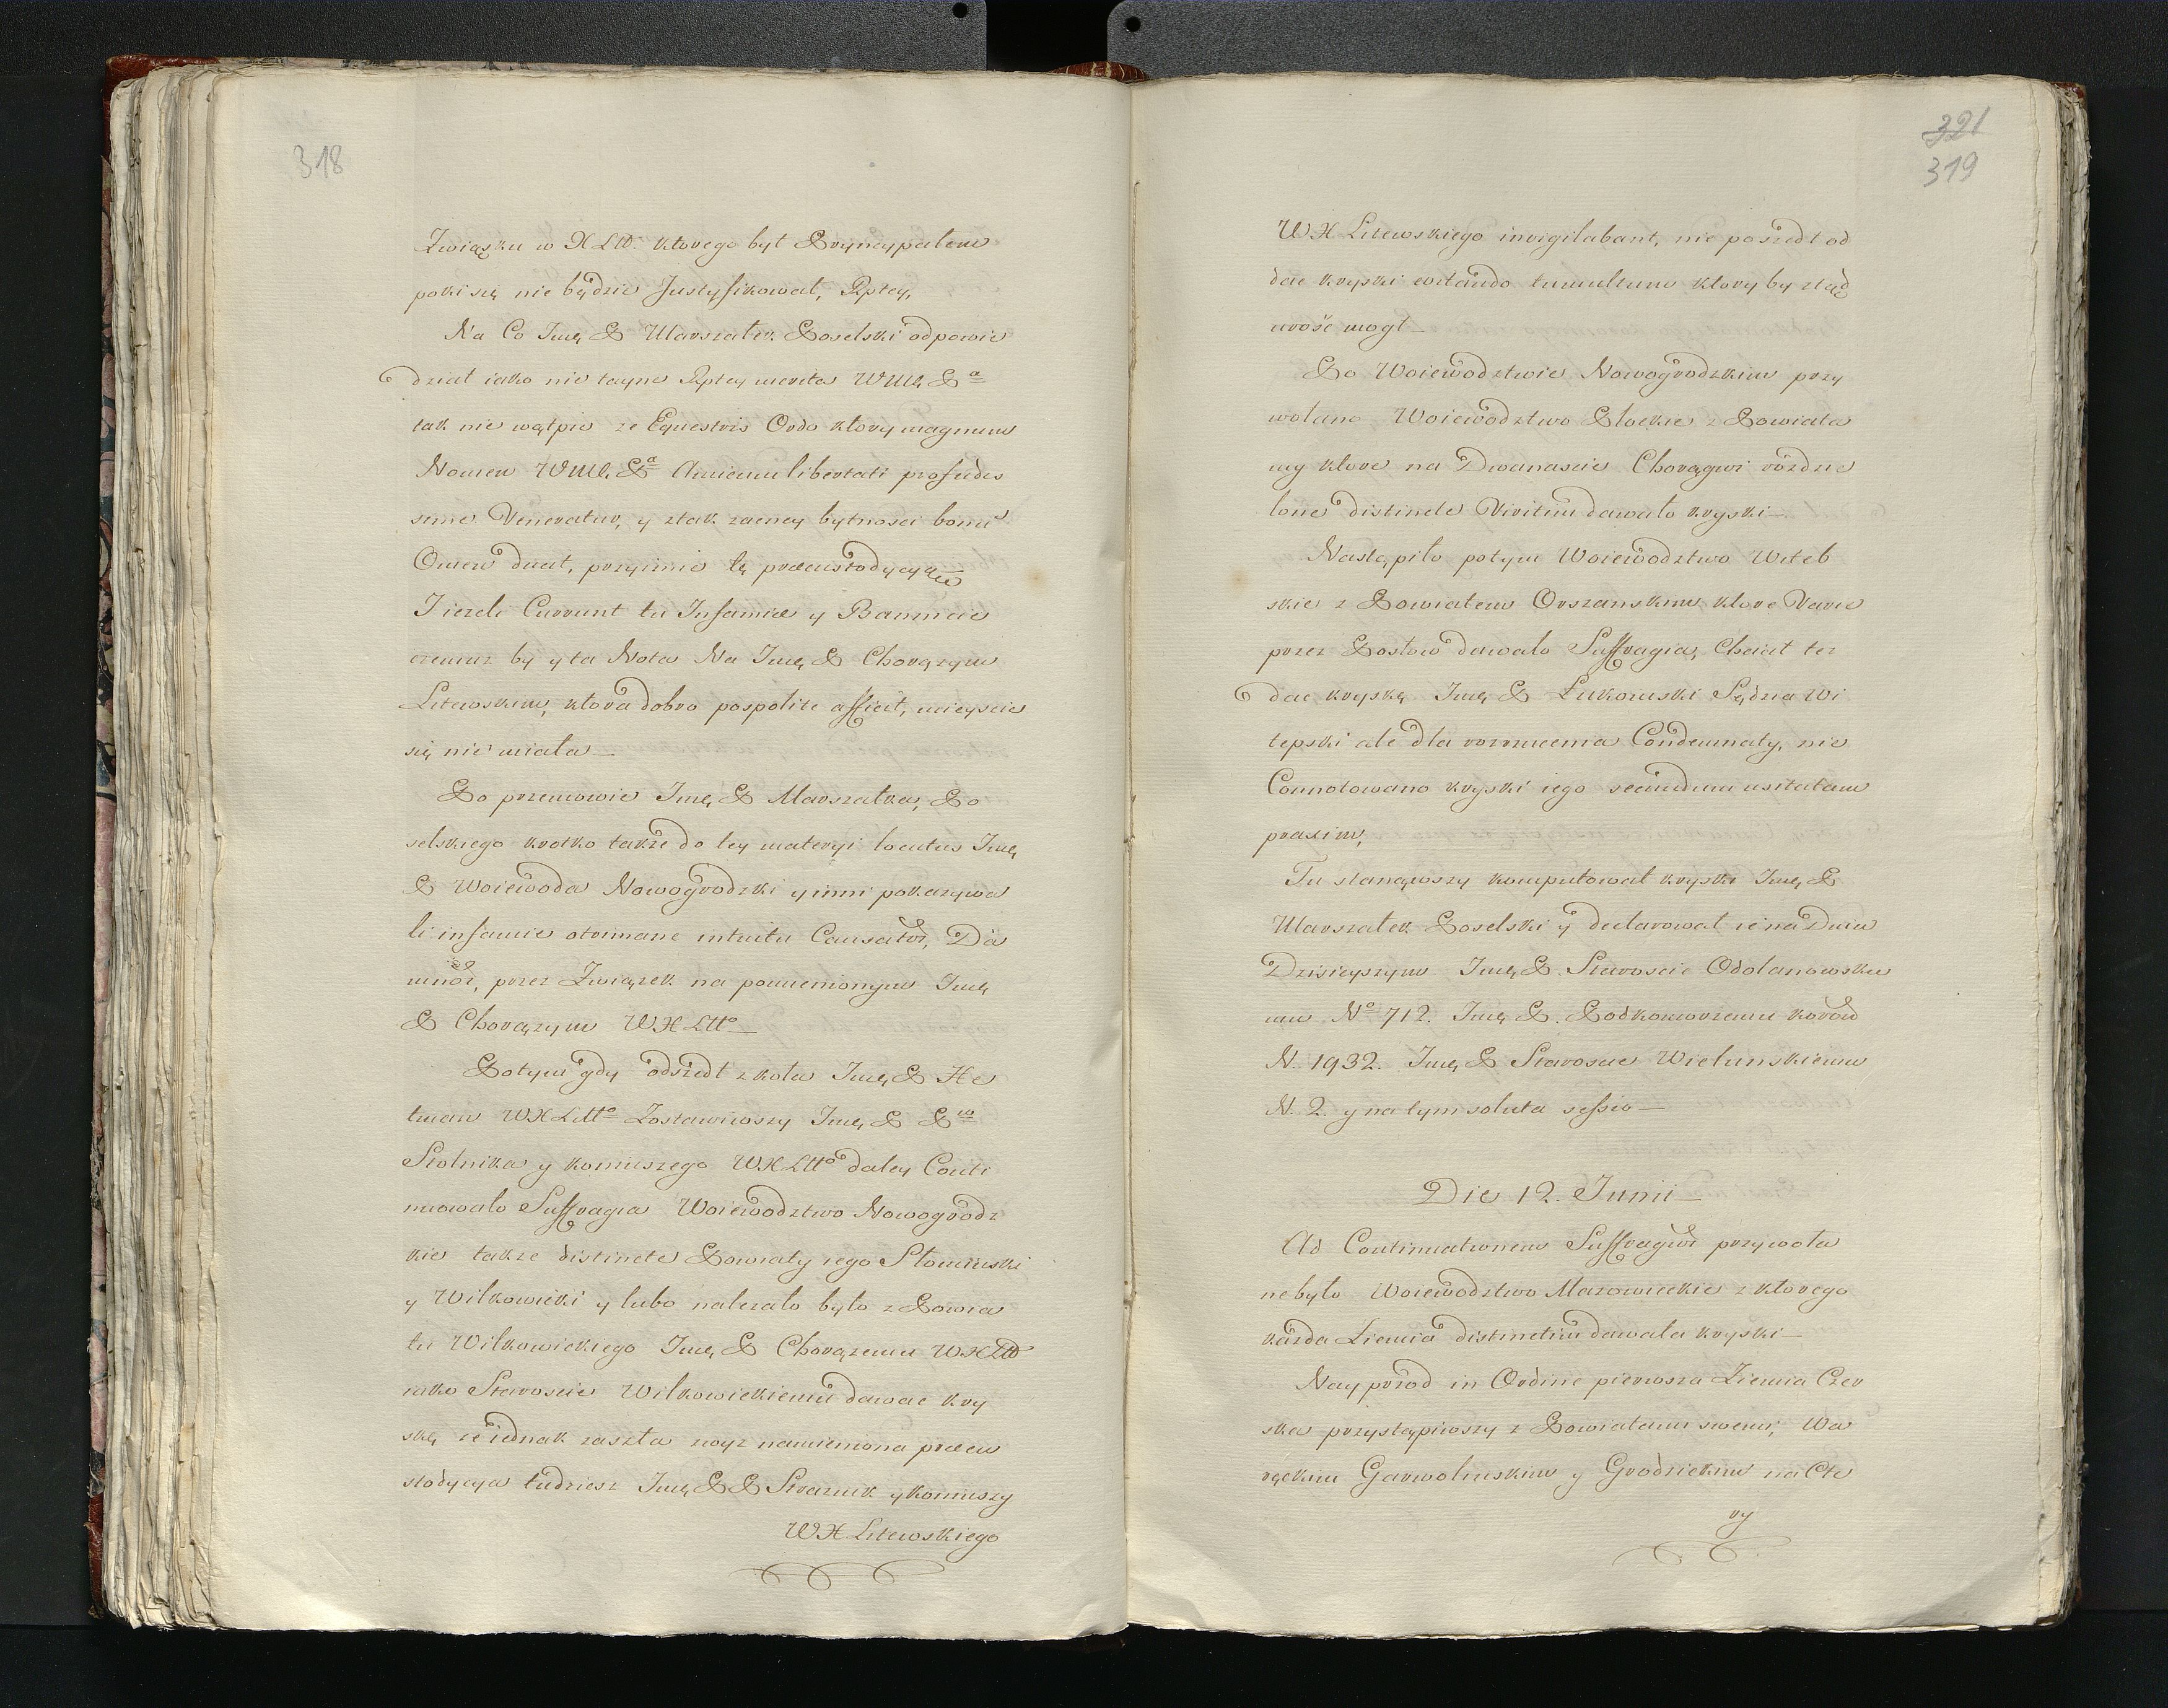 318
Związku w X Ltt. ktorego był Pryncypałem
poki się nie będzie Justyfikował, Rptey,
Na Co Jmę P Marszałek Poselski odpowie
dział iako nie tayne Rptey merita WMę Pa
tak nie wątpie ze Equestris Ordo ktory magnum
Nomen WMę Pa Amicum libertati profudis
sime Veneratur, y ztak zacney bytnosci bonũ
Omen ducit, przyimie tę praecustodycyą
I iezeli Currunt tu Infamiae y Bannicie
czemuz by y ta Nota Na Jmę P Chorązym
Litewskim, ktora dobro pospolite afficit, mieysca
się nie miała
Po przemowie Jmę P Marszałka, Po
selskiego krotko także do tey materyi locutus Jmę
P Woiewoda Nowogrodzki y inni pokazywa
li infamie otrimane intuitu Causatoꝝ, Da
mnoꝝ, przez Związek na pomienionym Jmę
P Chorązym WX Ltto
Potym gdy odszedł z koła Jmę P He
tman WX Litto Zostawiwszy Jmę P Pw
Stolnika y Koniuszego WX Ltto daley Conti
nuowało Suffragia Woiewodztwo Nowogrodz
kie takze distincte Powiaty iego Słonimski
y Wilkowicki y lubo nalezało było z Powia
tu Wilkowickiego Jmę P Chorązemu WX Ltt
iako Staroscie Wilkowickiemu dawac kry
skę ze iednak zaszła wyz namieniona praecu
stodycya tudziesz Jmę P P Straznik y Koniuszy
WX Litewskiego
321
319
WX Litewskiego invigilabant, nie poszedł od
dac kryski evitando tumultum ktory by ztąd
urość mogł
Po Woiewodztwie Nowogrodzkim przy
wołano Woiewodztwo Płockie z Powiata
my ktore na Dwanascie Chorągwi rozdzie
lone distincte Viritim dawało kryski
Nastąpiło potym Woiewodztwo Witeb
skie z Powiatem Orszanskim ktore Varie
przez Posłow dawało Suffragia, Chciał tez
dac kryskę Jmę P Łukomski Sędzia Wi
tepski ale dla rzuczenia Condemnaty, nie
Connotowano kryski iego secundum usitatam
praxim,
Tu stanąwszy komputował kryski Jmę P
Marszałek Poselski y declarował ze na Dniu
Dzisieyszym Jmę P. Staroscie Odolanowskie
mu No 712. Jmę P. Podkomorzemu koroꝝ
N. 1932. Jmę P Staroscie Wielunskiemu
N. 2. y na tym soluta sessio
Die 12. Junii
Ad Continuationem Suffragioꝝ przywoła
ne było Woiewodztwo Mazowieckie z ktorego
każda Ziemia distinctim dawała kryski
Nayprzod in Ordine pierwsza Ziemia Czer
ska przystąpiwszy z Powiatami swemi, Wa
reckim Garwolinskim y Grodzickim na Czte
ry